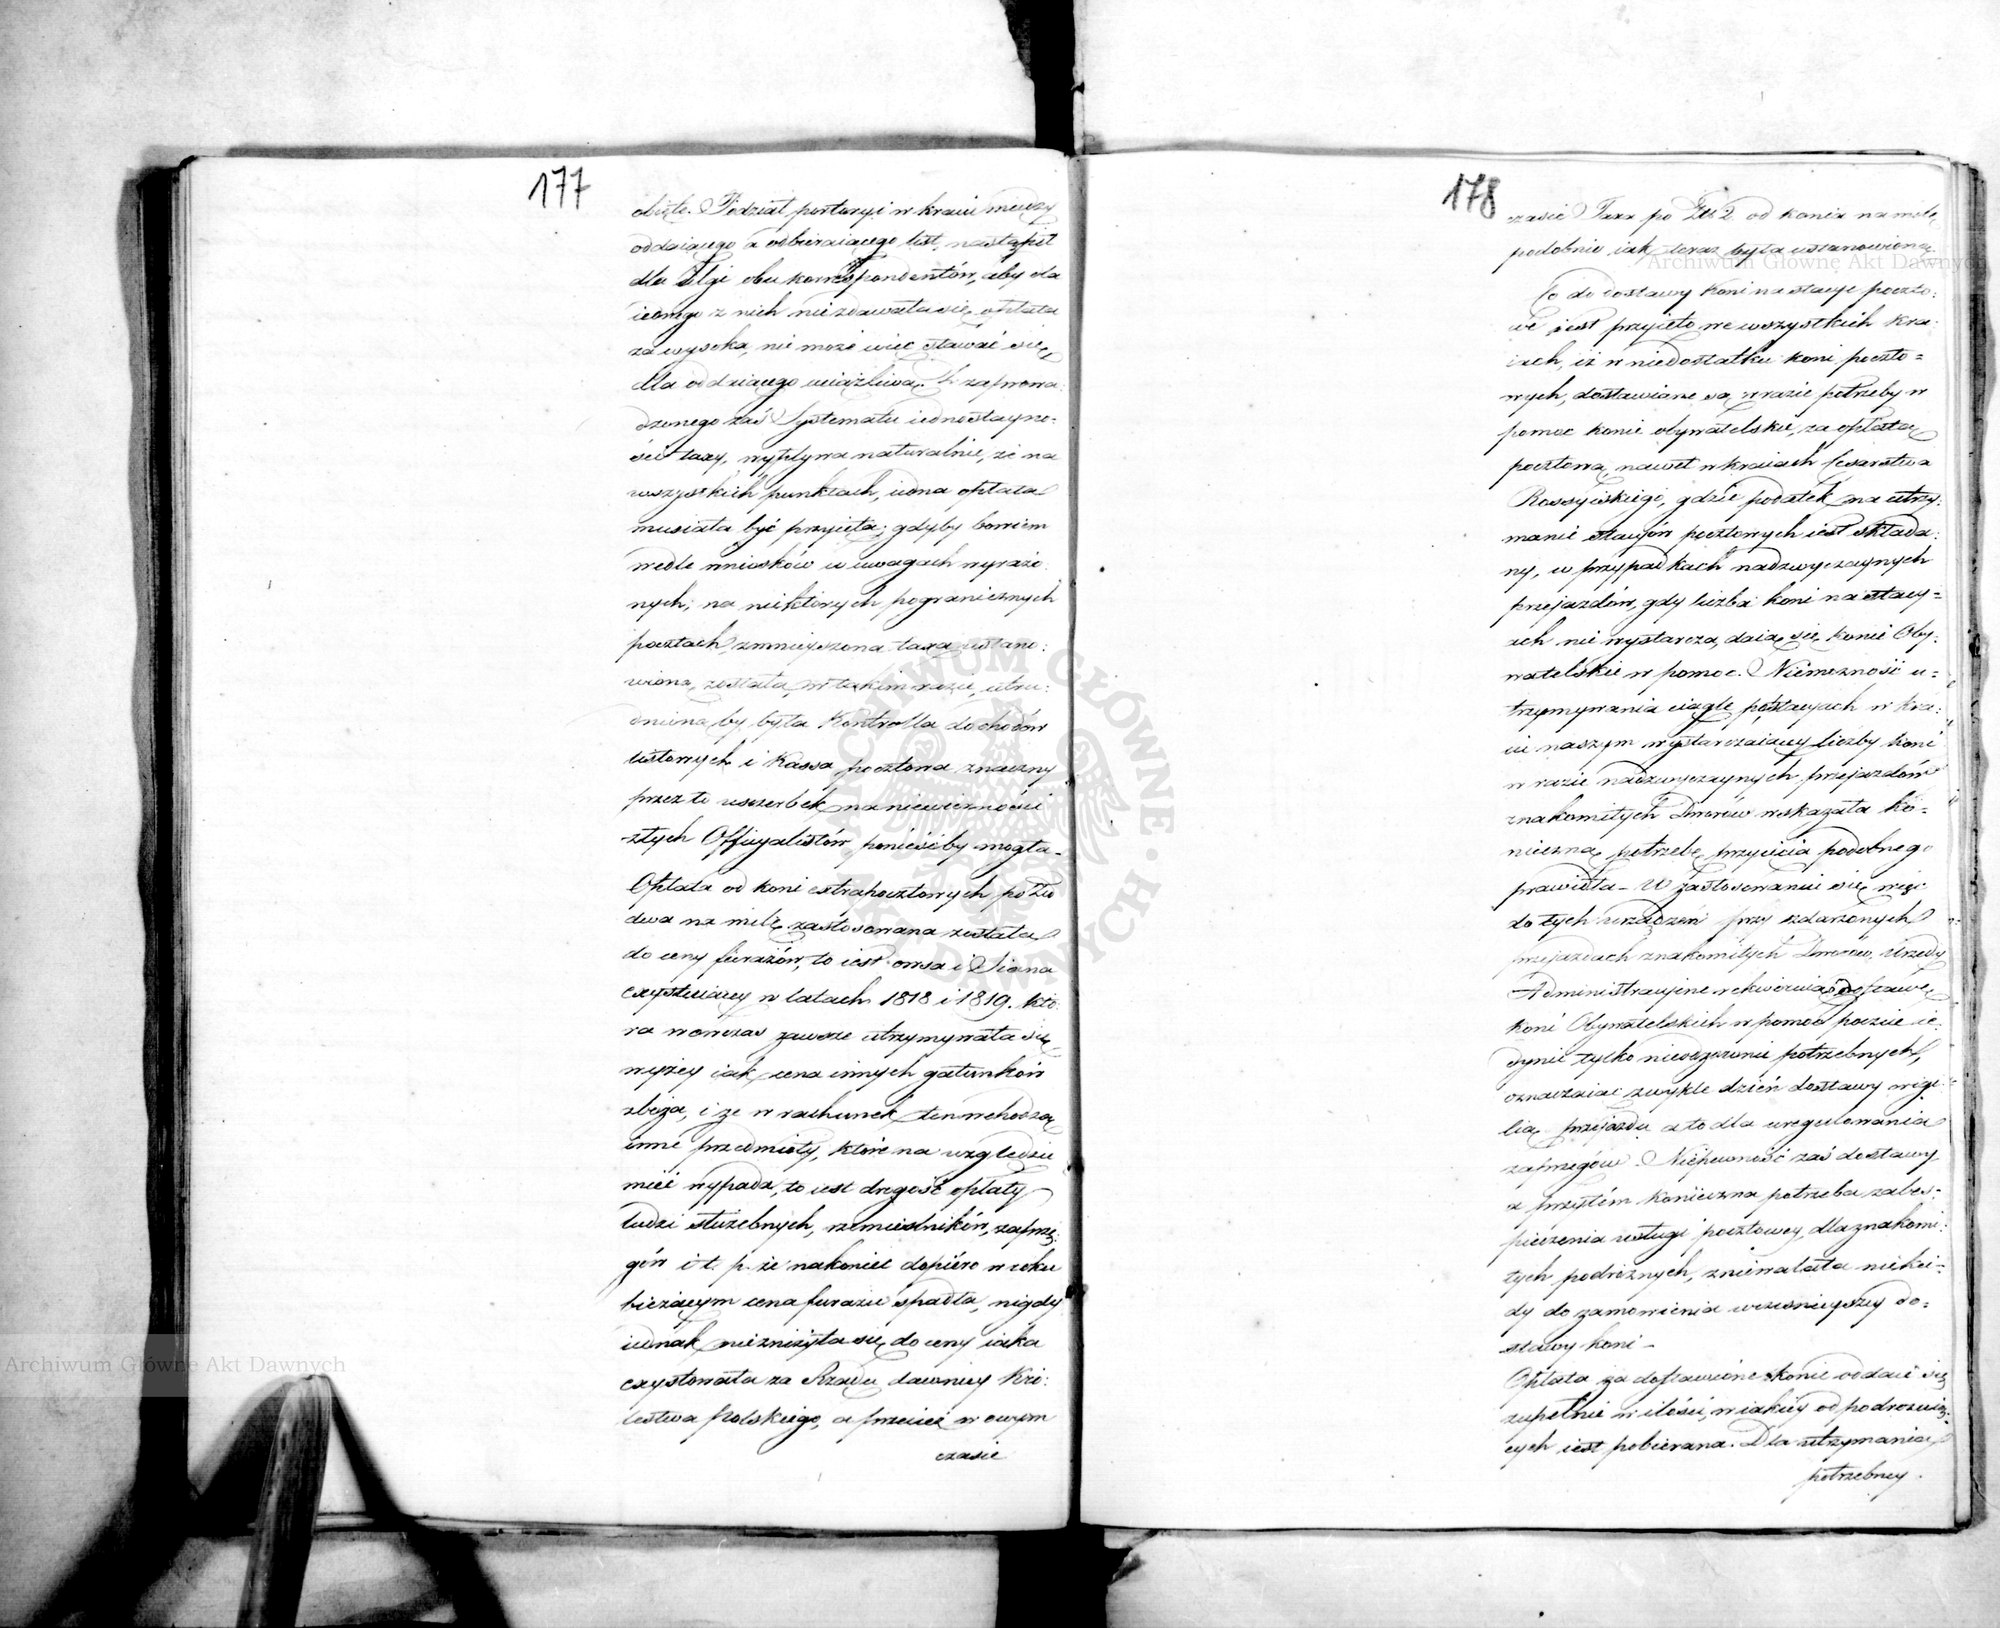 177
obięte. Podział portoryi w kraiu między
oddaiącego a odbieraiącego list, nastąpił
dla ulgi obu korrespondentów, aby dla
iednego z nich nie zdawała się opłata
za wysoka, nie może więc stawać się
dla oddaiącego uciążliwą. Z zaprowa:
dzonego zaś Systematu iednostayno:
ści taxy, wypływa naturalnie, że na
wszystkich punktach, iedna opłata
musiała być przyięta; gdyby bowiem
wedle wniosków w uwagach wyrażo:
nych, na niektórych pogranicznych
pocztach zmnieyszona taxa ustano:
wioną została, w takim razie utru:
dnioną by była Kontrolla dochodów
listowych i Kassa pocztowa znaczny
przez to uszczerbek na niewierności
złych Officyalistów, ponieśćby mogła.
Opłata od koni extrapocztowych po Złł
dwa na milę zastosowana została
do ceny furażów, to iest owsa i Siana
exystuiącey w latach 1818 i 1819. któ:
ra wonczas zawsze utrzymywała się
wyżey iak cena innych gatunków
zboża, i że w rachunek ten wchodzą
inne przedmioty, które na względzie
mieć wypada, to iest drogość opłaty
ludzi służebnych, rzemieślników, zaprzę:
gów i t. p. że nakoniec dopiéro w roku
bieżącym cena furażu spadła, nigdy
iednak nie zniżyła się do ceny iaka
exystowała za Rządu dawniey Kró:
lestwa Polskiego, a przecież w owym
czasie
178
czasie Taxa po Złł 2 od konia na milę
podobnie iak teraz była ustanowioną
Co do dostawy koni na stacye poczto:
we iest przyięto we wszystkich kra:
iach, iż w niedostatku koni poczto=
wych, dostawiane są w razie potrzeby w
pomoc konie obywatelskie, za opłatą
pocztową, nawet w kraiach Cesarstwa
Rossyiskiego, gdzie podatek na utrzy:
manie stacyów pocztowych iest składa:
ny, w przypadkach nadzwyczaynych
przejazdów, gdy liczba koni na stacy=
ach nie wystarcza, daią się konie Oby:
watelskie w pomoc. Niemożność u=
trzymywania ciągle po stacyach w kra:
iu naszym wystarczaiącey liczby koni
w razie nadzwyczaynych przejazdów
znakomitych Dworów wskazała ko=
nieczną potrzebę przyięcia podobnego
prawidła – W zastosowaniu się więc
do tych urządzeń przy zdarzonych
przejazdach znakomitych Dworów, Urzędy
Administracyine rekwiruią dostawę
koni Obywatelskich w pomoc poczcie ie:
dynie tylko nieodzownie potrzebnych,
oznaczaiąc zwykle dzień dostawy wigi:
lią przejazdu a to dla uregulowania
zaprzęgów. Niepewność zaś dostawy
a przytém konieczna potrzeba zabes=
pieczenia usługi pocztowey, dla znakomi:
tych podróżnych, zniewalała niekie=
dy do zamówienia wcześnieyszey do=
stawy koni –
Opłata za dostawione konie oddaie się
zupełnie w ilości, w iakiéy od podróżuią:
cych iest pobierana. Dla utrzymania
potrzebney.
Archiwum Główne Akt Dawnych
Archiwum Główne Akt Dawnych